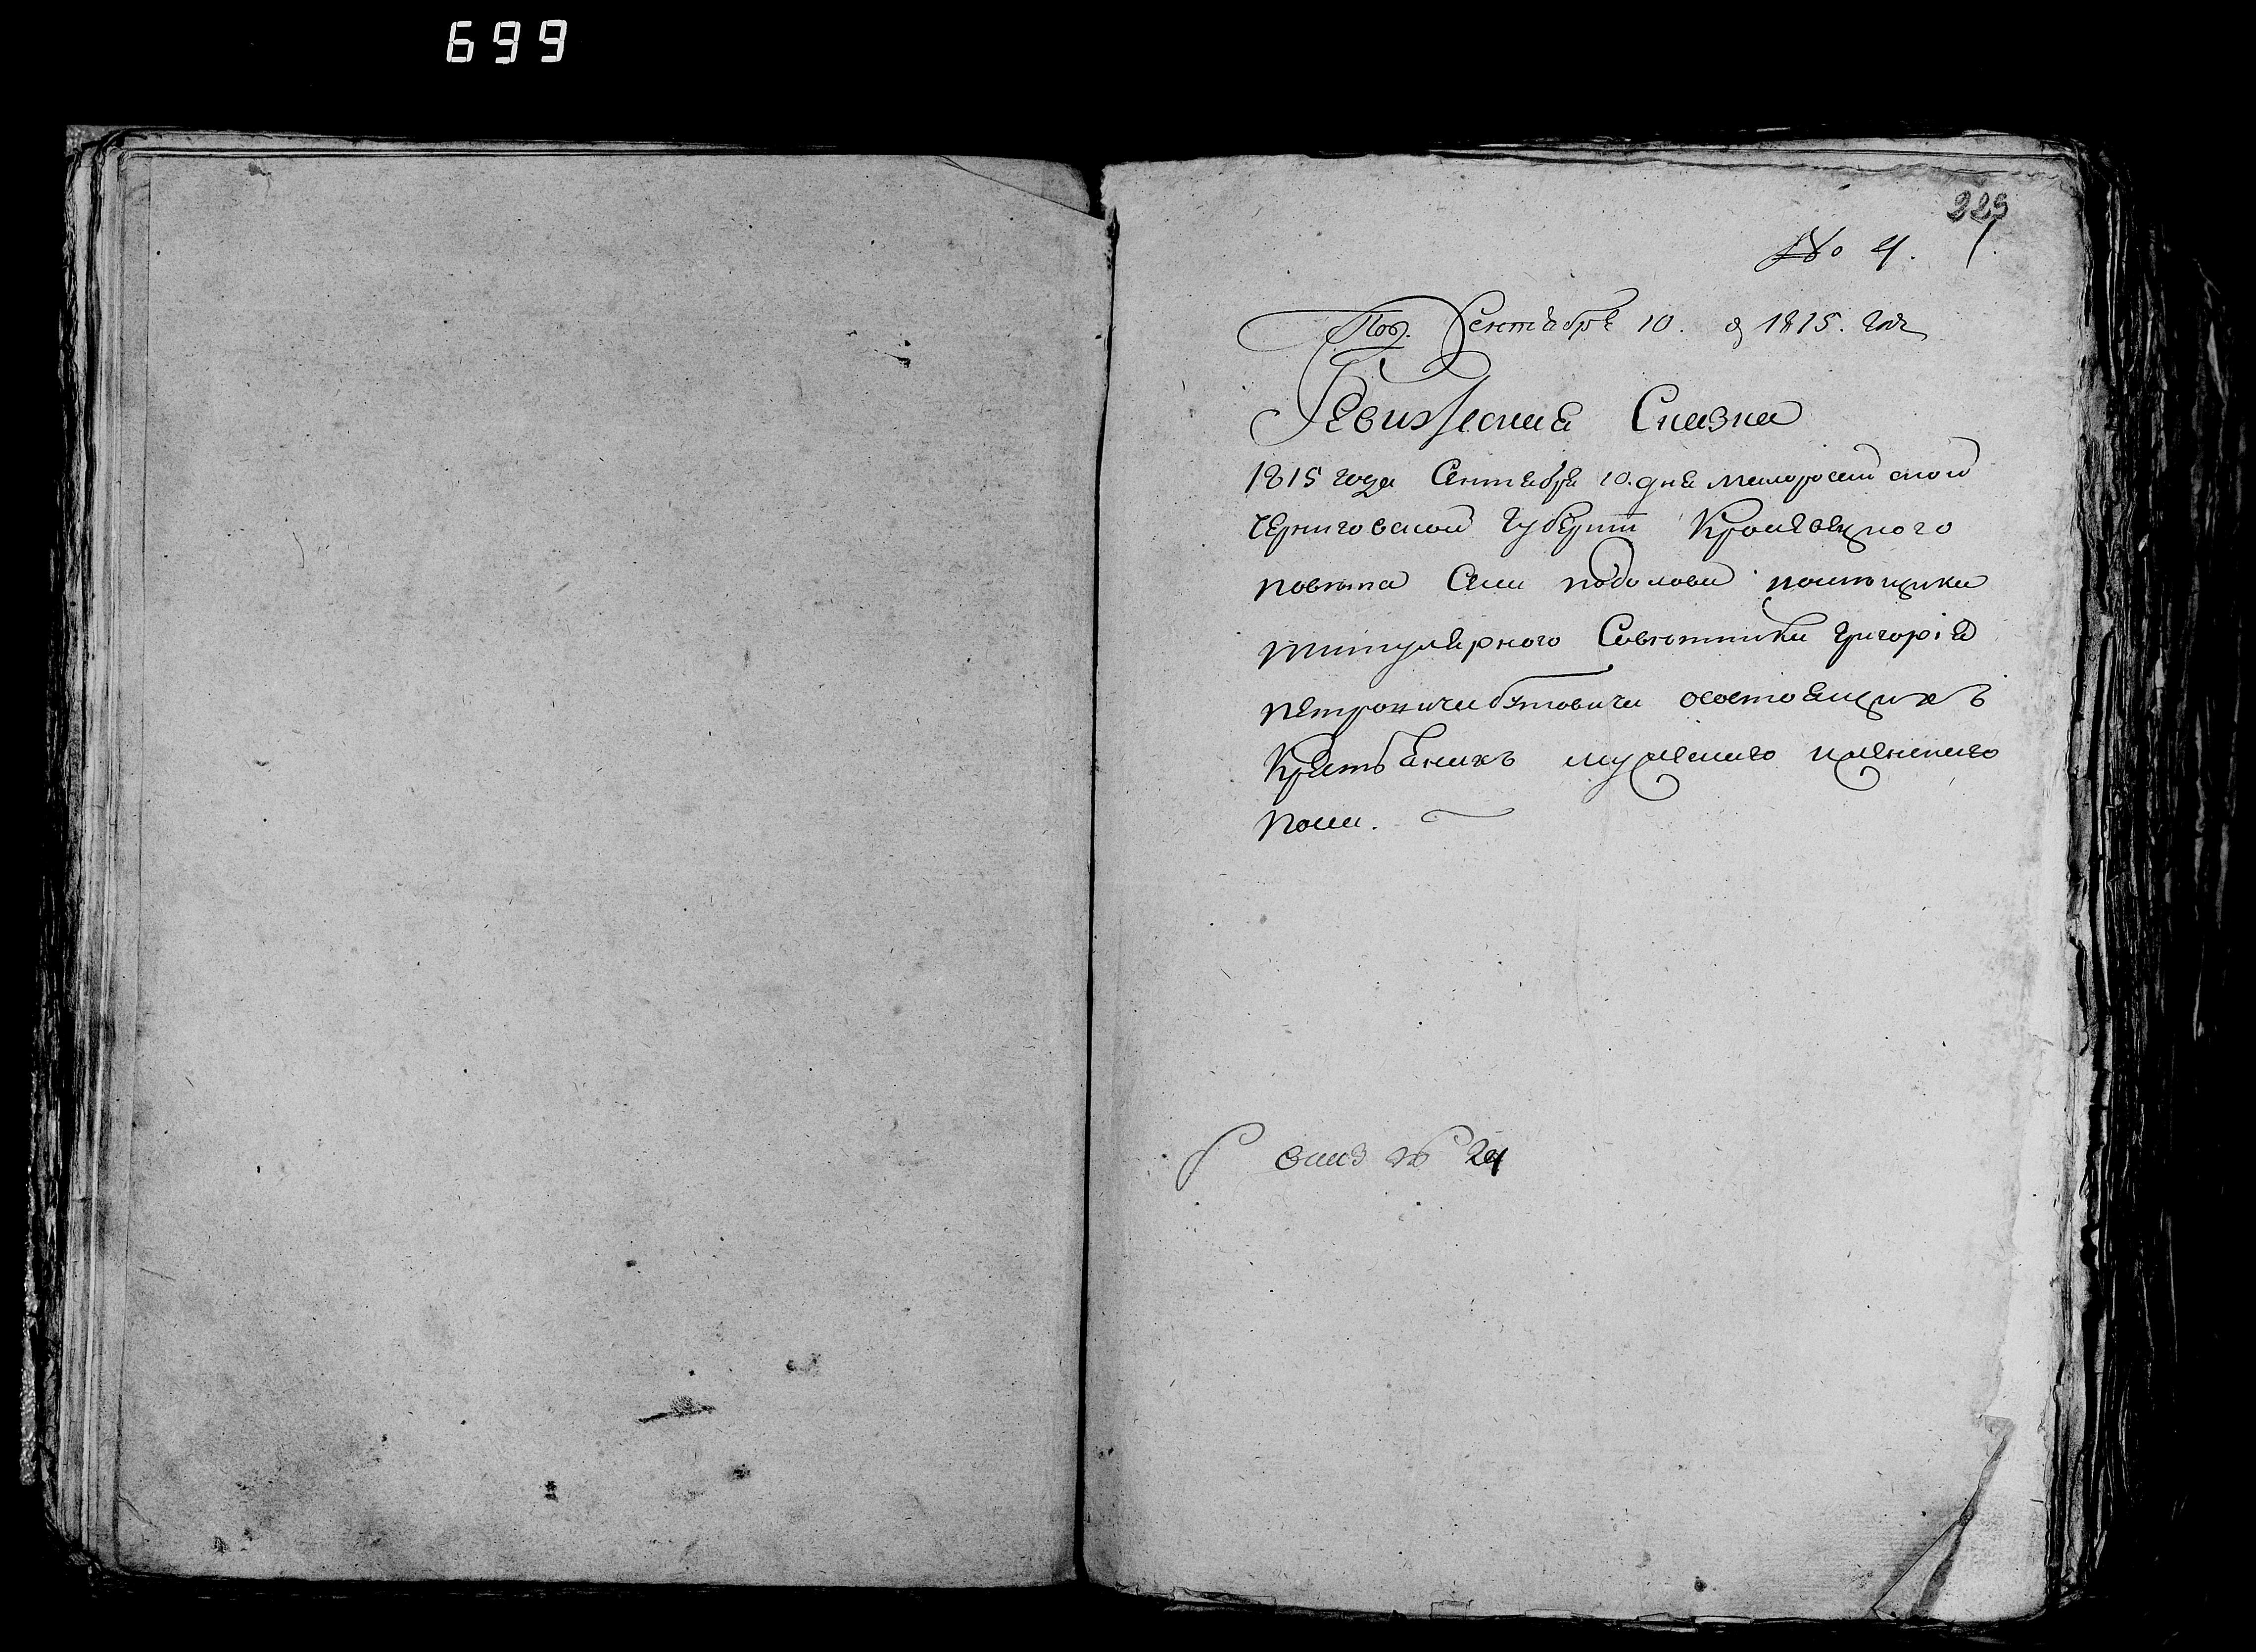 699
229
№ 4.
Под. Сентября 10. д 1815. года
Ревизская Сказка
1815 года Сентября 10. дня малоросийской
черниговской губернии Кролевецкого
повета Села подолова помещика
титулярного Советника григория
петровича осостоящихъ
Крестьянахъ мужеского иженского
пола.
№ 24